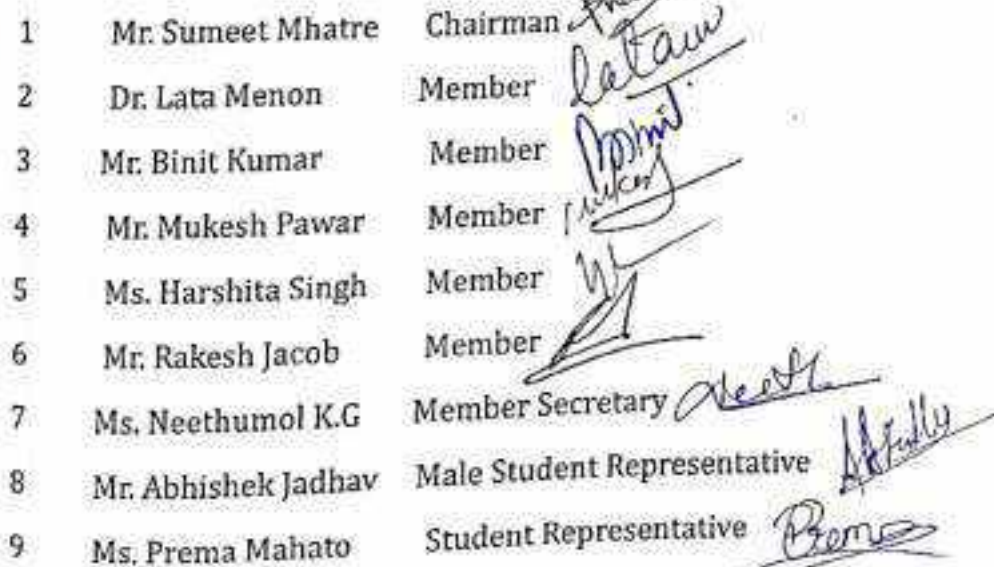 1 Mr. Sumeet Mhatre Chairman
2 Dr. Lata Menon Member
3 Mr. Binit Kumar Member
4 Mr. Mukesh Pawar Member
5 Ms. Harshita Singh Member
6 Mr. Rakesh Jacob Member
7 Ms. Neethumol K.G Member Secretary
8 Mr. Abhishek Jadhav Male Student Representative
9 Ms. Prema Mahato Student Representative